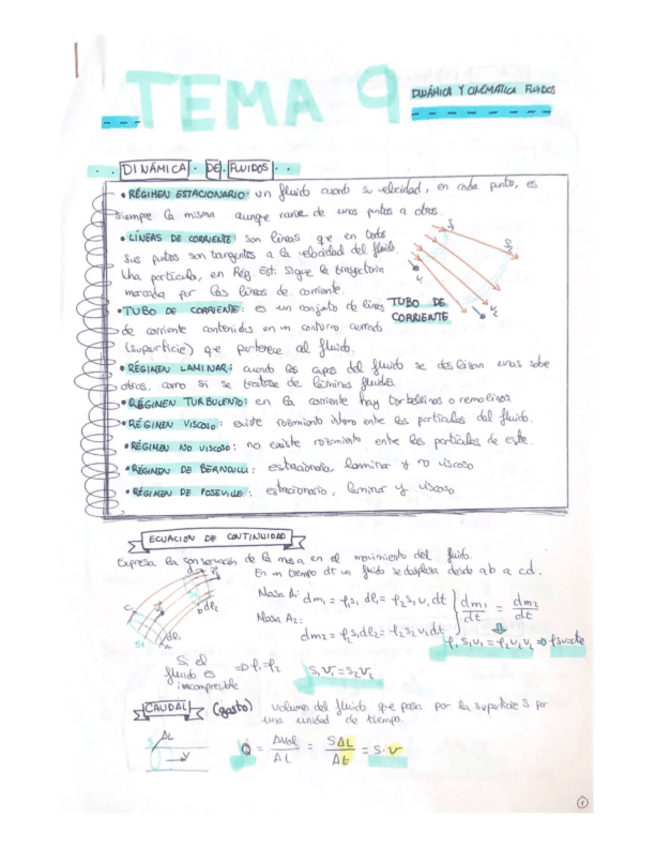 TEMA 9
DINÁMICA Y CINEMÁTICA FLUIDOS
DINÁMICA DE FLUIDOS
• RÉGIMEN ESTACIONARIO: un fluido cuando su velocidad, en cada punto, es
siempre la misma aunque varíe de unos puntos a otros.
• LÍNEAS DE CORRIENTE: son líneas que en todos
sus puntos son tangentes a la velocidad del fluido.
Una partícula, en Rég. Est. sigue la trayectoria
marcada por las líneas de corriente.
• TUBO DE CORRIENTE: es un conjunto de líneas
de corriente contenidas en un contorno cerrado
(superficie) que pertenece al fluido.
TUBO DE
CORRIENTE
• RÉGIMEN LAMINAR: cuando las capas del fluido se deslizan unas sobre
otras, como si se tratase de láminas fluidas.
• RÉGIMEN TURBULENTO: en la corriente hay torbellinos o remolinos
• RÉGIMEN VISCOSO: existe rozamiento interno entre las partículas del fluido.
• RÉGIMEN NO VISCOSO: no existe rozamiento entre las partículas de este.
• RÉGIMEN DE BERNOULLI: estacionario, laminar y no viscoso
• RÉGIMEN DE POSEVILLE: estacionario, laminar y viscoso
ECUACIÓN DE CONTINUIDAD
Expresa la conservación de la masa en el movimiento del fluido.
En un tiempo dt un fluido se desplaza desde ab a cd.
Masa A₁: dm₁ = ρ₁s₁ dl₁ =
Masa A₂:
dm₂ = ρ₂s₂dl₂ = ρ₂s₂v₂dt
dm₁/dt = dm₂/dt
Si el
fluido es
incompresible
⇒ ρ₁=ρ₂
S₁V₁=S₂V₂
CAUDAL (gasto) Volumen del fluido que pasa por la superficie S por
una unidad de tiempo.
ΔL
v
Q = ΔVol/Δt = SΔL/Δt = S·v
1